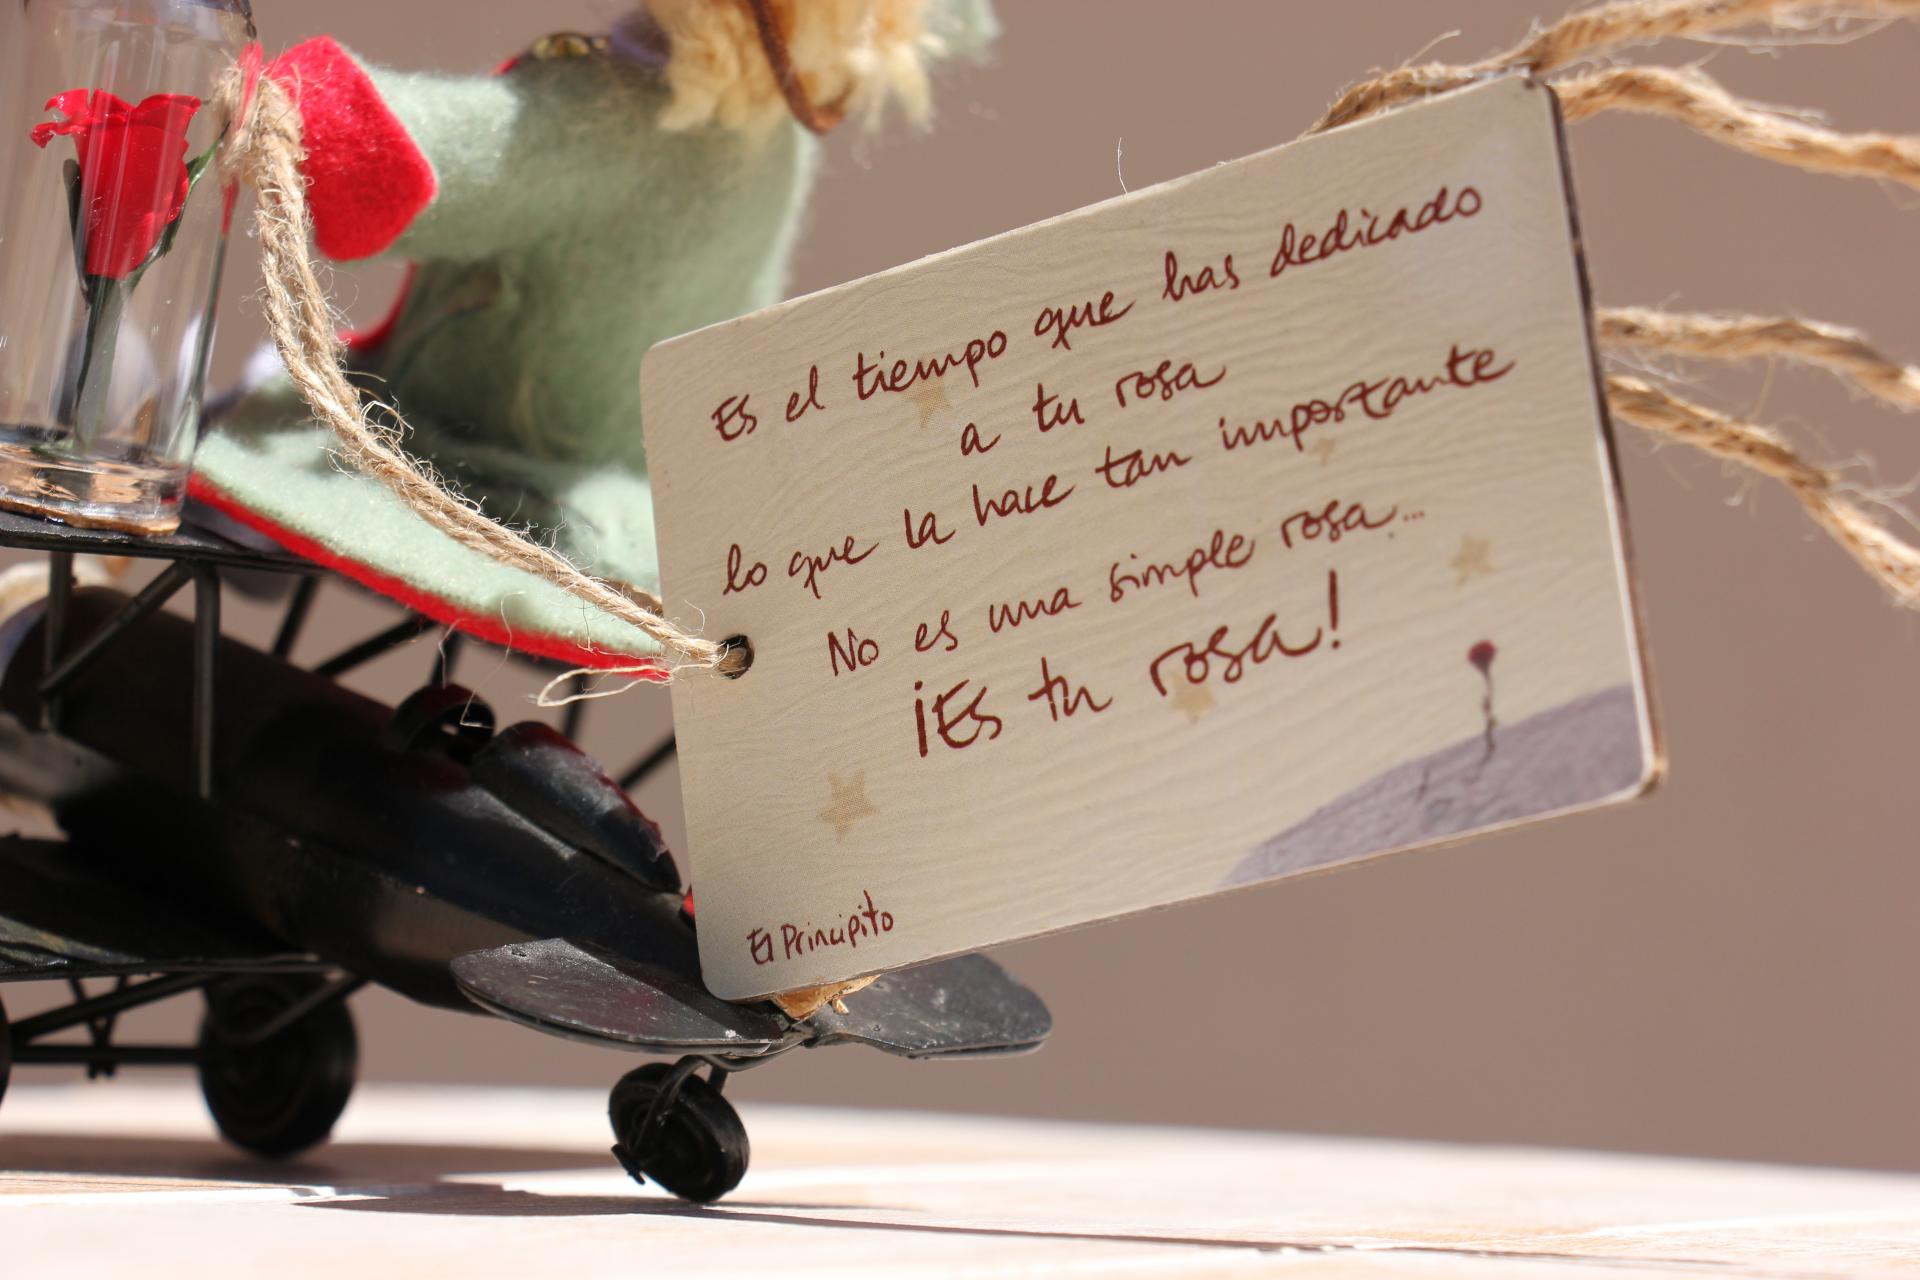 Es el tiempo que has dedicado
a tu rosa
lo que la hace tan importante
No es una simple rosa...
¡Es tu rosa!
El Principito